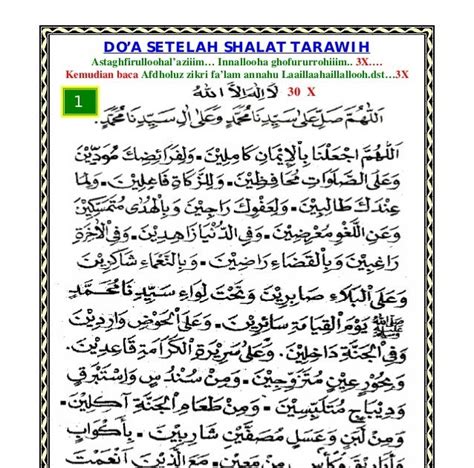 DO'A SETELAH SHALAT TARAWIH
Astaghfirulloohal'aziiim… Innallooha ghofururrohiiim.. 3X….
Kemudian baca Afdholuz zikri fa'lam annahu Laaillaahaillallooh.dst…3X
1
لَا إِلٰهَ إِلَّا اللهُ 30 X
اَللّٰهُمَّ صَلِّ عَلَى سَيِّدِنَا مُحَمَّدٍ وَعَلَى اٰلِ سَيِّدِنَا مُحَمَّدٍ.
اَللّٰهُمَّ اجْعَلْنَا بِالْإِيْمَانِ كَامِلِيْنَ. وَلِفَرَائِضِكَ مُؤَدِّيْنَ
وَعَلَى الصَّلَوَاتِ مُحَافِظِيْنَ. وَلِلزَّكَاةِ فَاعِلِيْنَ. وَلِمَا
عِنْدَكَ طَالِبِيْنَ. وَلِعَفْوِكَ رَاجِيْنَ وَبِالْهُدَى مُتَمَسِّكِيْنَ
وَعَنِ اللَّغْوِ مُعْرِضِيْنَ. وَفِي الدُّنْيَا زَاهِدِيْنَ. وَفِي الْاٰخِرَةِ
رَاغِبِيْنَ وَبِالْقَضَاءِ رَاضِيْنَ. وَبِالنَّعْمَاءِ شَاكِرِيْنَ
وَعَلَى الْبَلَاءِ صَابِرِيْنَ وَتَحْتَ لِوَاءِ سَيِّدِنَا مُحَمَّدٍ
ﷺ يَوْمَ الْقِيَامَةِ سَائِرِيْنَ. وَعَلَى الْحَوْضِ وَارِدِيْنَ
وَفِي الْجَنَّةِ دَاخِلِيْنَ. وَعَلَى سَرِيْرَةِ الْكَرَامَةِ قَاعِدِيْنَ.
وَبِحُوْرٍ عِيْنٍ مُتَزَوِّجِيْنَ. وَمِنْ سُنْدُسٍ وَاِسْتَبْرَقٍ
وَدِيْبَاجٍ مُتَلَبِّسِيْنَ. وَمِنْ طَعَامِ الْجَنَّةِ اٰكِلِيْنَ.
وَمِنْ لَبَنٍ وَعَسَلٍ مُصَفَّيْنِ شَارِبِيْنَ. بِأَكْوَابٍ
وَأَبَارِيْقَ وَكَأْسٍ مِنْ مَعِيْنٍ. مَعَ الَّذِيْنَ أَنْعَمْتَ